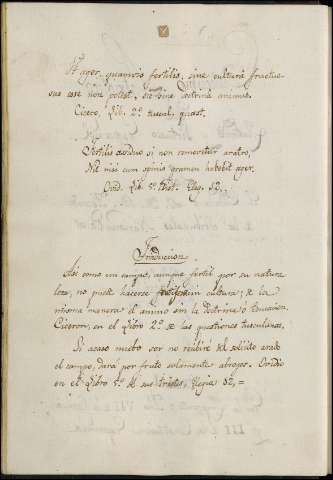 Ut ager, quamvis fertilis, sine cultura fructuo-
sus esse non potest, sic sine doctrina animus.
Cicero, Lib. 2º. tuscul, quæst.
Fertilis assiduo si non renovetur aratro,
Nil nisi cum spinis gramen habebit ager.
Ovid. Lib. 5º. Trist. Eleg. 12.
Traducion.
Asi como un campo, aunque fertil por su natura
leza, no puede hacerse sin cultura; de la
misma manera el animo sin la doctrina ó educacion.
Ciceron, en el Libro 2º. de las questiones tusculanas.
Si acaso nuebo ser no recibiré del solicito arado
el campo, dará por fruto solamente abrojos. Ovidio
en el Libro 5º. de sus tristes, Elegia 12,=